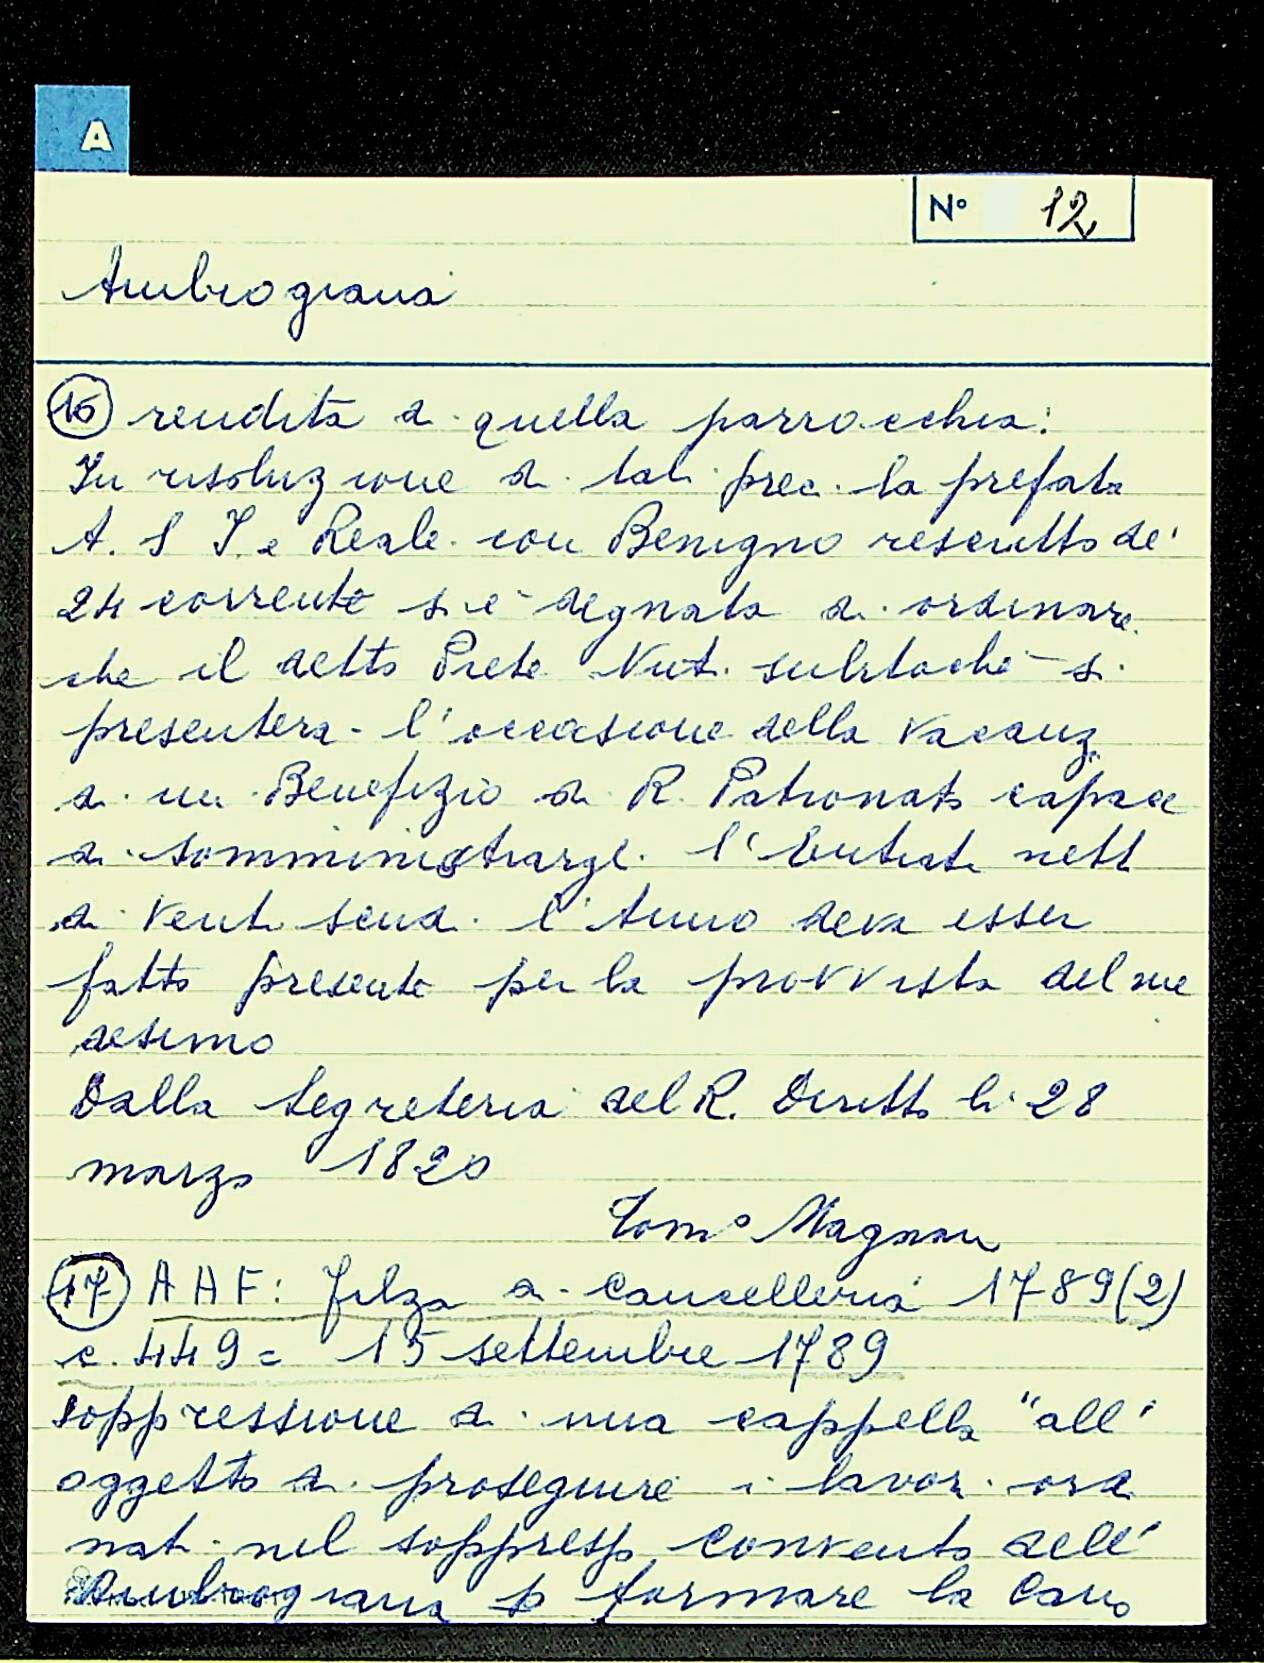 A
N° 12
Ambrogiana
16 rendita di quella parrocchia:
In risoluzione di tali prec. la prefata
A. S. I. e Reale con Benigno rescritto de'
24 corrente si è degnata di ordinare
che il detto Prete Nuti subitochè si
presenterà l'occasione della vacanz
di un Benefizio di R. Patronato capace
di somministrargli l'Entrata nett
di venti scudi l'Anno deva esser
fatto presente per la provvista del me
desimo
Dalla Segreteria del R. Diritto li 28
marzo 1820
Tom° Magnani
17 AAF: filza di Cancelleria 1789(2)
c. 449 = 15 settembre 1789
soppressione di una cappella "all'
oggetto di proseguire i lavori ordi
nati nel soppresso convento dell'
Ambrogiana p formare la Cano